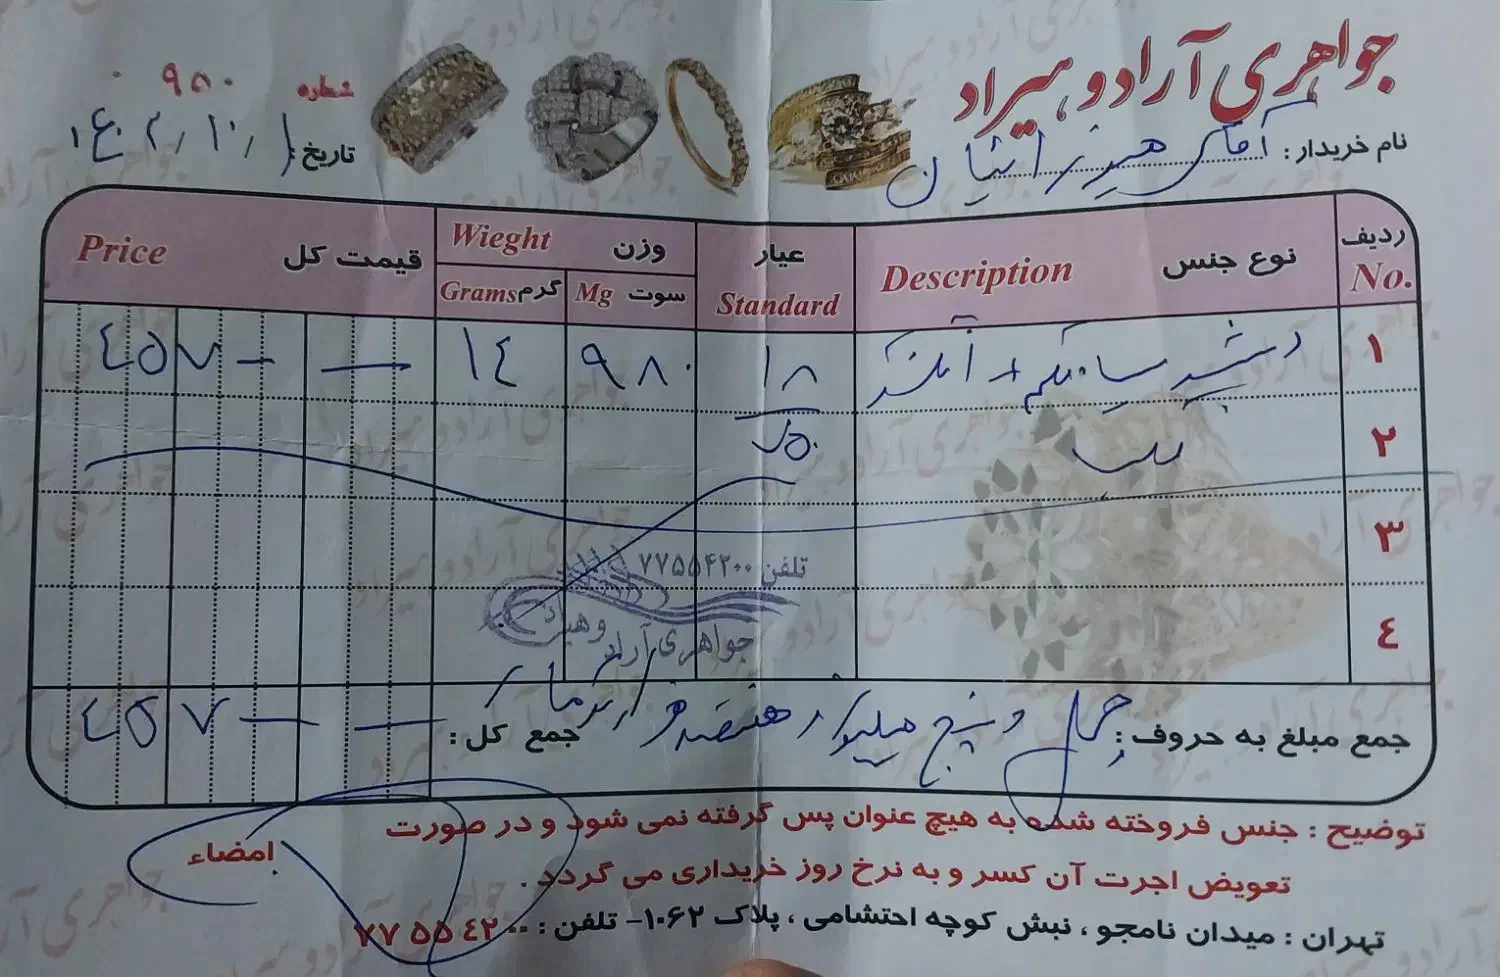 جواهری آراد و هیراد
شماره ۹۵۰
نام خریدار: آقای
تاریخ:
ردیف No. نوع جنس Description عیار Standard وزن Wieght سوت Mg گرم Grams قیمت کل Price
۱ ۱۸ ۹۸۰ ۱٤ ٤۵۷ — —
۷۵۰
۲
۳
٤
تلفن ۷۷۵۵۴۲۰۰
جواهری آراد و هیراد
جمع مبلغ به حروف: چهل و پنج میلیون و هفتصد هزار تومان جمع کل: ٤۵۷ — —
توضیح : جنس فروخته شده به هیچ عنوان پس گرفته نمی شود و در صورت
تعویض اجرت آن کسر و به نرخ روز خریداری می گردد .
امضاء
تهران : میدان نامجو ، نبش کوچه احتشامی ، پلاک ۱۰۶۲- تلفن : ۷۷ ۵۵ ٤۲ ۰۰